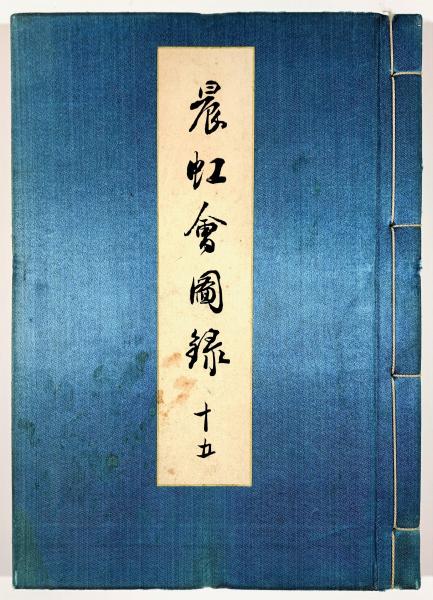 晨虹會圖録 十五